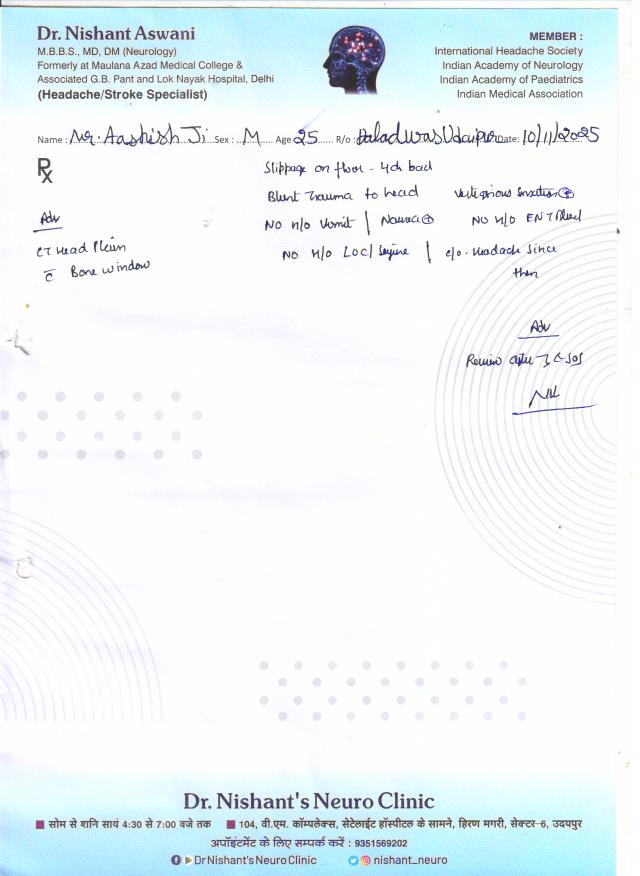 Dr. Nishant Aswani
M.B.B.S., MD, DM (Neurology)
Formerly at Maulana Azad Medical College &
Associated G.B. Pant and Lok Nayak Hospital, Delhi
(Headache/Stroke Specialist)
MEMBER :
International Headache Society
Indian Academy of Neurology
Indian Academy of Paediatrics
Indian Medical Association
Name : Mr. Aashish Ji Sex : M Age 25 R/o : Udaipur Date: 10/11/2025
Rx
Slippage on floor - 4d back
Blunt Trauma to head
NO H/o Vomit | Nausea ⊕ NO H/o ENT Bleed
NO H/o LOC/ | c/o. Headach since
then
Adv
CT Head Plain
c̄ Bone window
Adv
Review after
Dr. Nishant's Neuro Clinic
सोम से शनि सायं 4:30 से 7:00 बजे तक 104, वी.एम. कॉम्पलेक्स, सेटेलाईट हॉस्पीटल के सामने, हिरण मगरी, सेक्टर-6, उदयपुर
अपॉइंटमेंट के लिए सम्पर्क करें : 9351569202
Dr Nishant's Neuro Clinic nishant_neuro